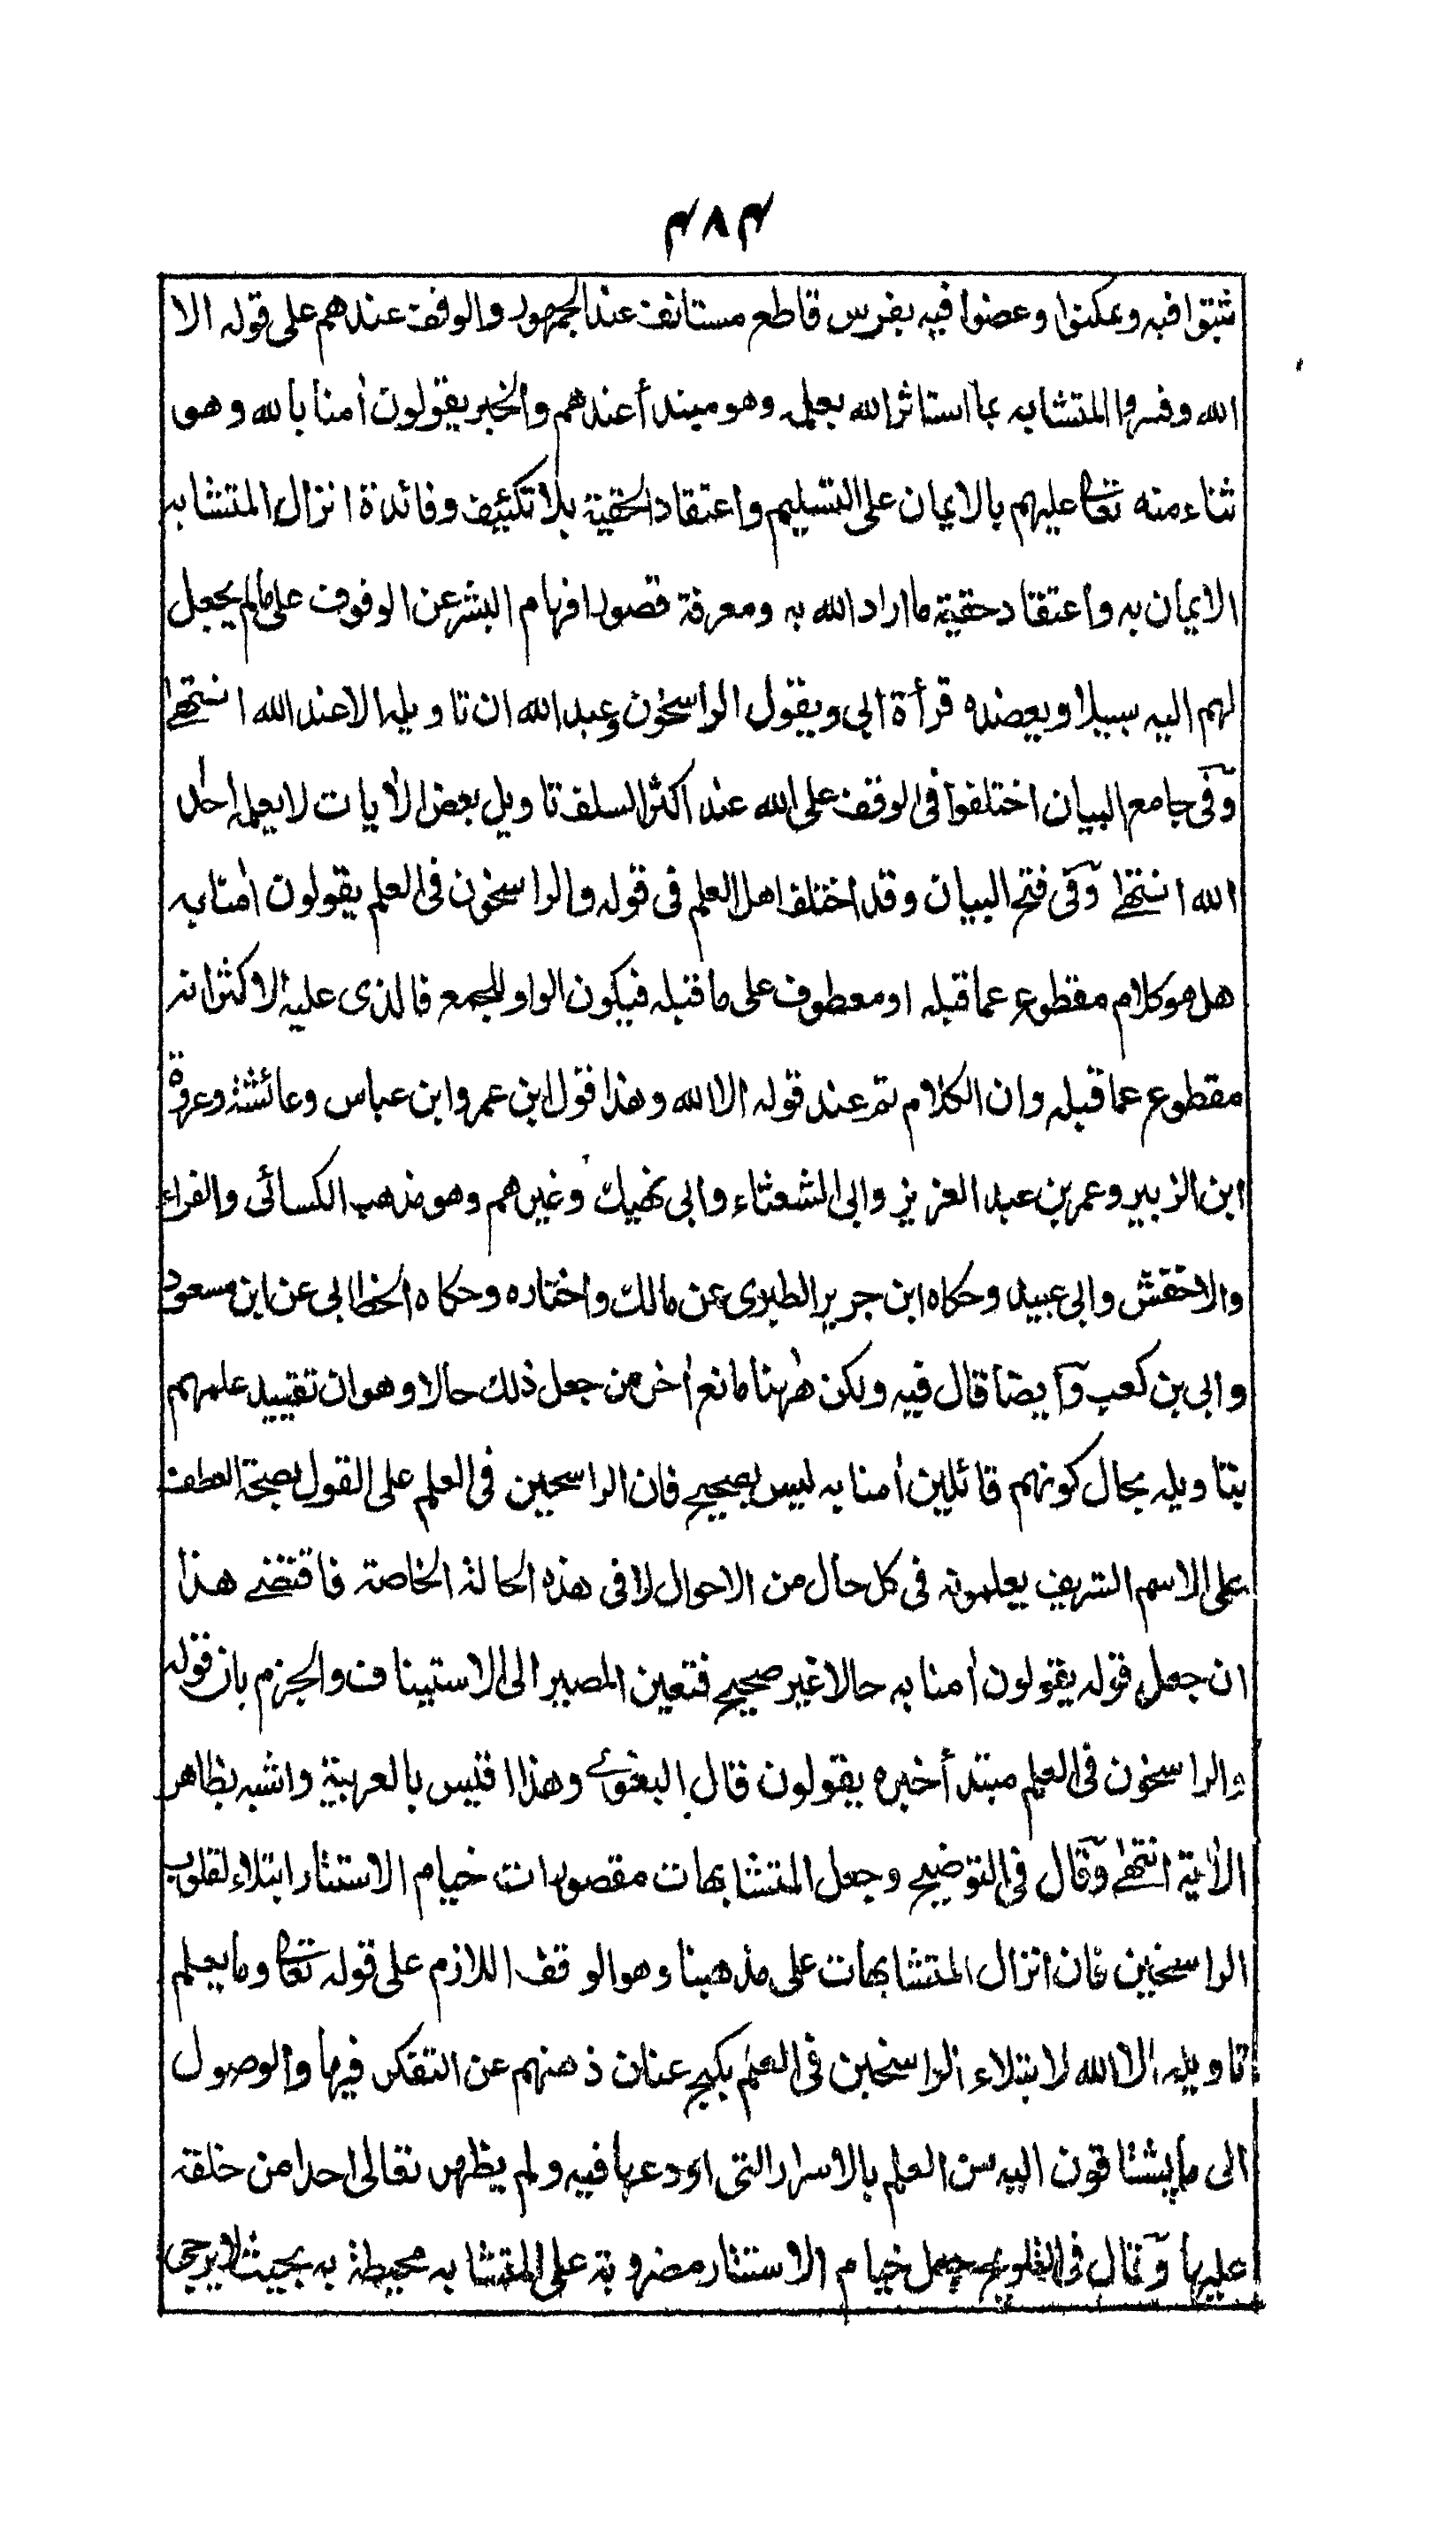 ۴۸۴
ثبتوا فيه وتمكنوا وعضوا فيه بضرس قاطع مستانف عند الجمهور والوقف عندهم على قوله الا
الله وفسروا المتشابه بما استاثر الله بعلمه وهو مبتدأ عندهم والخبر يقولون اٰمنا بالله وهو
ثناء منه تعالىٰ عليهم بالايمان على التسليم واعتقاد الحقية بلا تكييف وفائدة انزال المتشابه
الايمان به واعتقاد حقية ما اراد الله به ومعرفة قصور افهام البشر عن الوقوف على مالم يجعل
لهم اليه سبيلا ويعضده قرأة ابى ويقول الراسخون وعبد الله ان تاويله الا عند الله انتهىٰ
وفى جامع البيان اختلفوا فى الوقف على الله عند اكثر السلف تاويل بعض الاٰيات لا يعلمه احد
الله انتهىٰ وفى فتح البيان وقد اختلف اهل العلم فى قوله والراسخون فى العلم يقولون اٰمنا به
هل هو كلام مقطوع عما قبله او معطوف على ما قبله فيكون الواو للجمع فالذى عليه الاكثر انه
مقطوع عما قبله وان الكلام تم عند قوله الا الله وهذا قول ابن عمر وابن عباس وعائشة وعروة
ابن الزبير وعمر بن عبد العزيز وابى الشعثاء وابى نهيك وغيرهم وهو مذهب الكسائى والفراء
والاخفش وابى عبيد وحكاه ابن جرير الطبرى عن مالك واختاره وحكاه الخطابى عن ابن مسعود
وابى بن كعب وايضا قال فيه ولكن ههنا مانع اٰخر من جعل ذلك حالا وهو ان تقييد علمهم
بتاويله بحال كونهم قائلين اٰمنا به ليس بصحيح فان الراسخين فى العلم على القول بصحة العطف
على الاسم الشريف يعلمونه فى كل حال من الاحوال لا فى هذه الحالة الخاصة فاقتضے هذا
ان جعل قوله يقولون اٰمنا به حالا غير صحيح فتعين المصير الى الاستيناف والجزم بان قوله
والراسخون فى العلم مبتدأ خبره يقولون قال البغوے وهذا اقيس بالعربية واشبه بظاهر
الاٰية انتهىٰ وقال فى التوضيح وجعل المتشابهات مقصورات خيام الاستتار ابتلاء لقلوب
الراسخين فان انزال المتشابهات على مذهبنا وهو الوقف اللازم على قوله تعالىٰ وما يعلم
تاويله الا الله لابتلاء الراسخين فى العلم بكبح عنان ذهنهم عن التفكر فيها والوصول
الى ما يشتاقون اليه من العلم بالاسرار التى اودعها فيه ولم يظهر تعالى احدا من خلقه
عليها وقال فى التلويح جعل خيام الاستتار مضروبة على المتشابه محيطة به بحيث لا يرجى